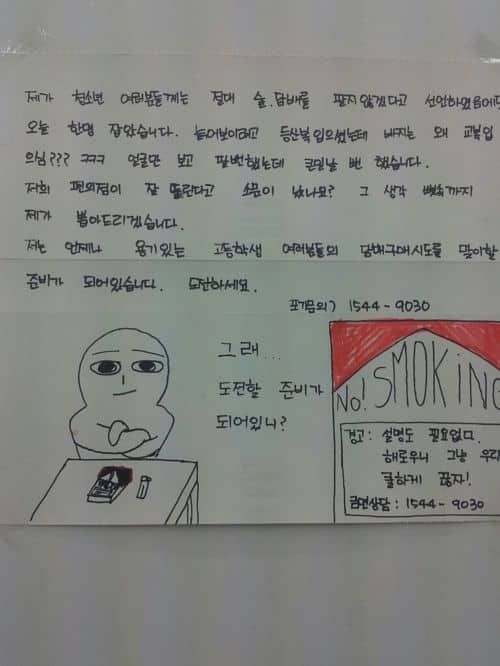 제가 청소년 여러분들께는 절대 술.담배를 팔지않겠다고 선언하였음에도
오늘 한명 잡았습니다. 늙어보이려고 등산복입으셨는데 바지는 왜 교복입
으심??? ㅋㅋㅋ 얼굴만 보고 팔뻔했는데 큰일날 뻔 했습니다.
저희 편의점이 잘 뚫린다고 소문이 났나요? 그 생각 뿌리까지
제가 뽑아드리겠습니다.
저는 언제나 용기있는 고등학생 여러분들의 담배구매시도를 맞이할
준비가 되어있습니다. 도전하세요.
포기문의) 1544-9030
그래...
도전할 준비가
되어있니?
No! SMOKiNG
경고: 설명도 필요없다.
해로우니 그냥 우리
쿨하게 끊자!
금연상담: 1544-9030